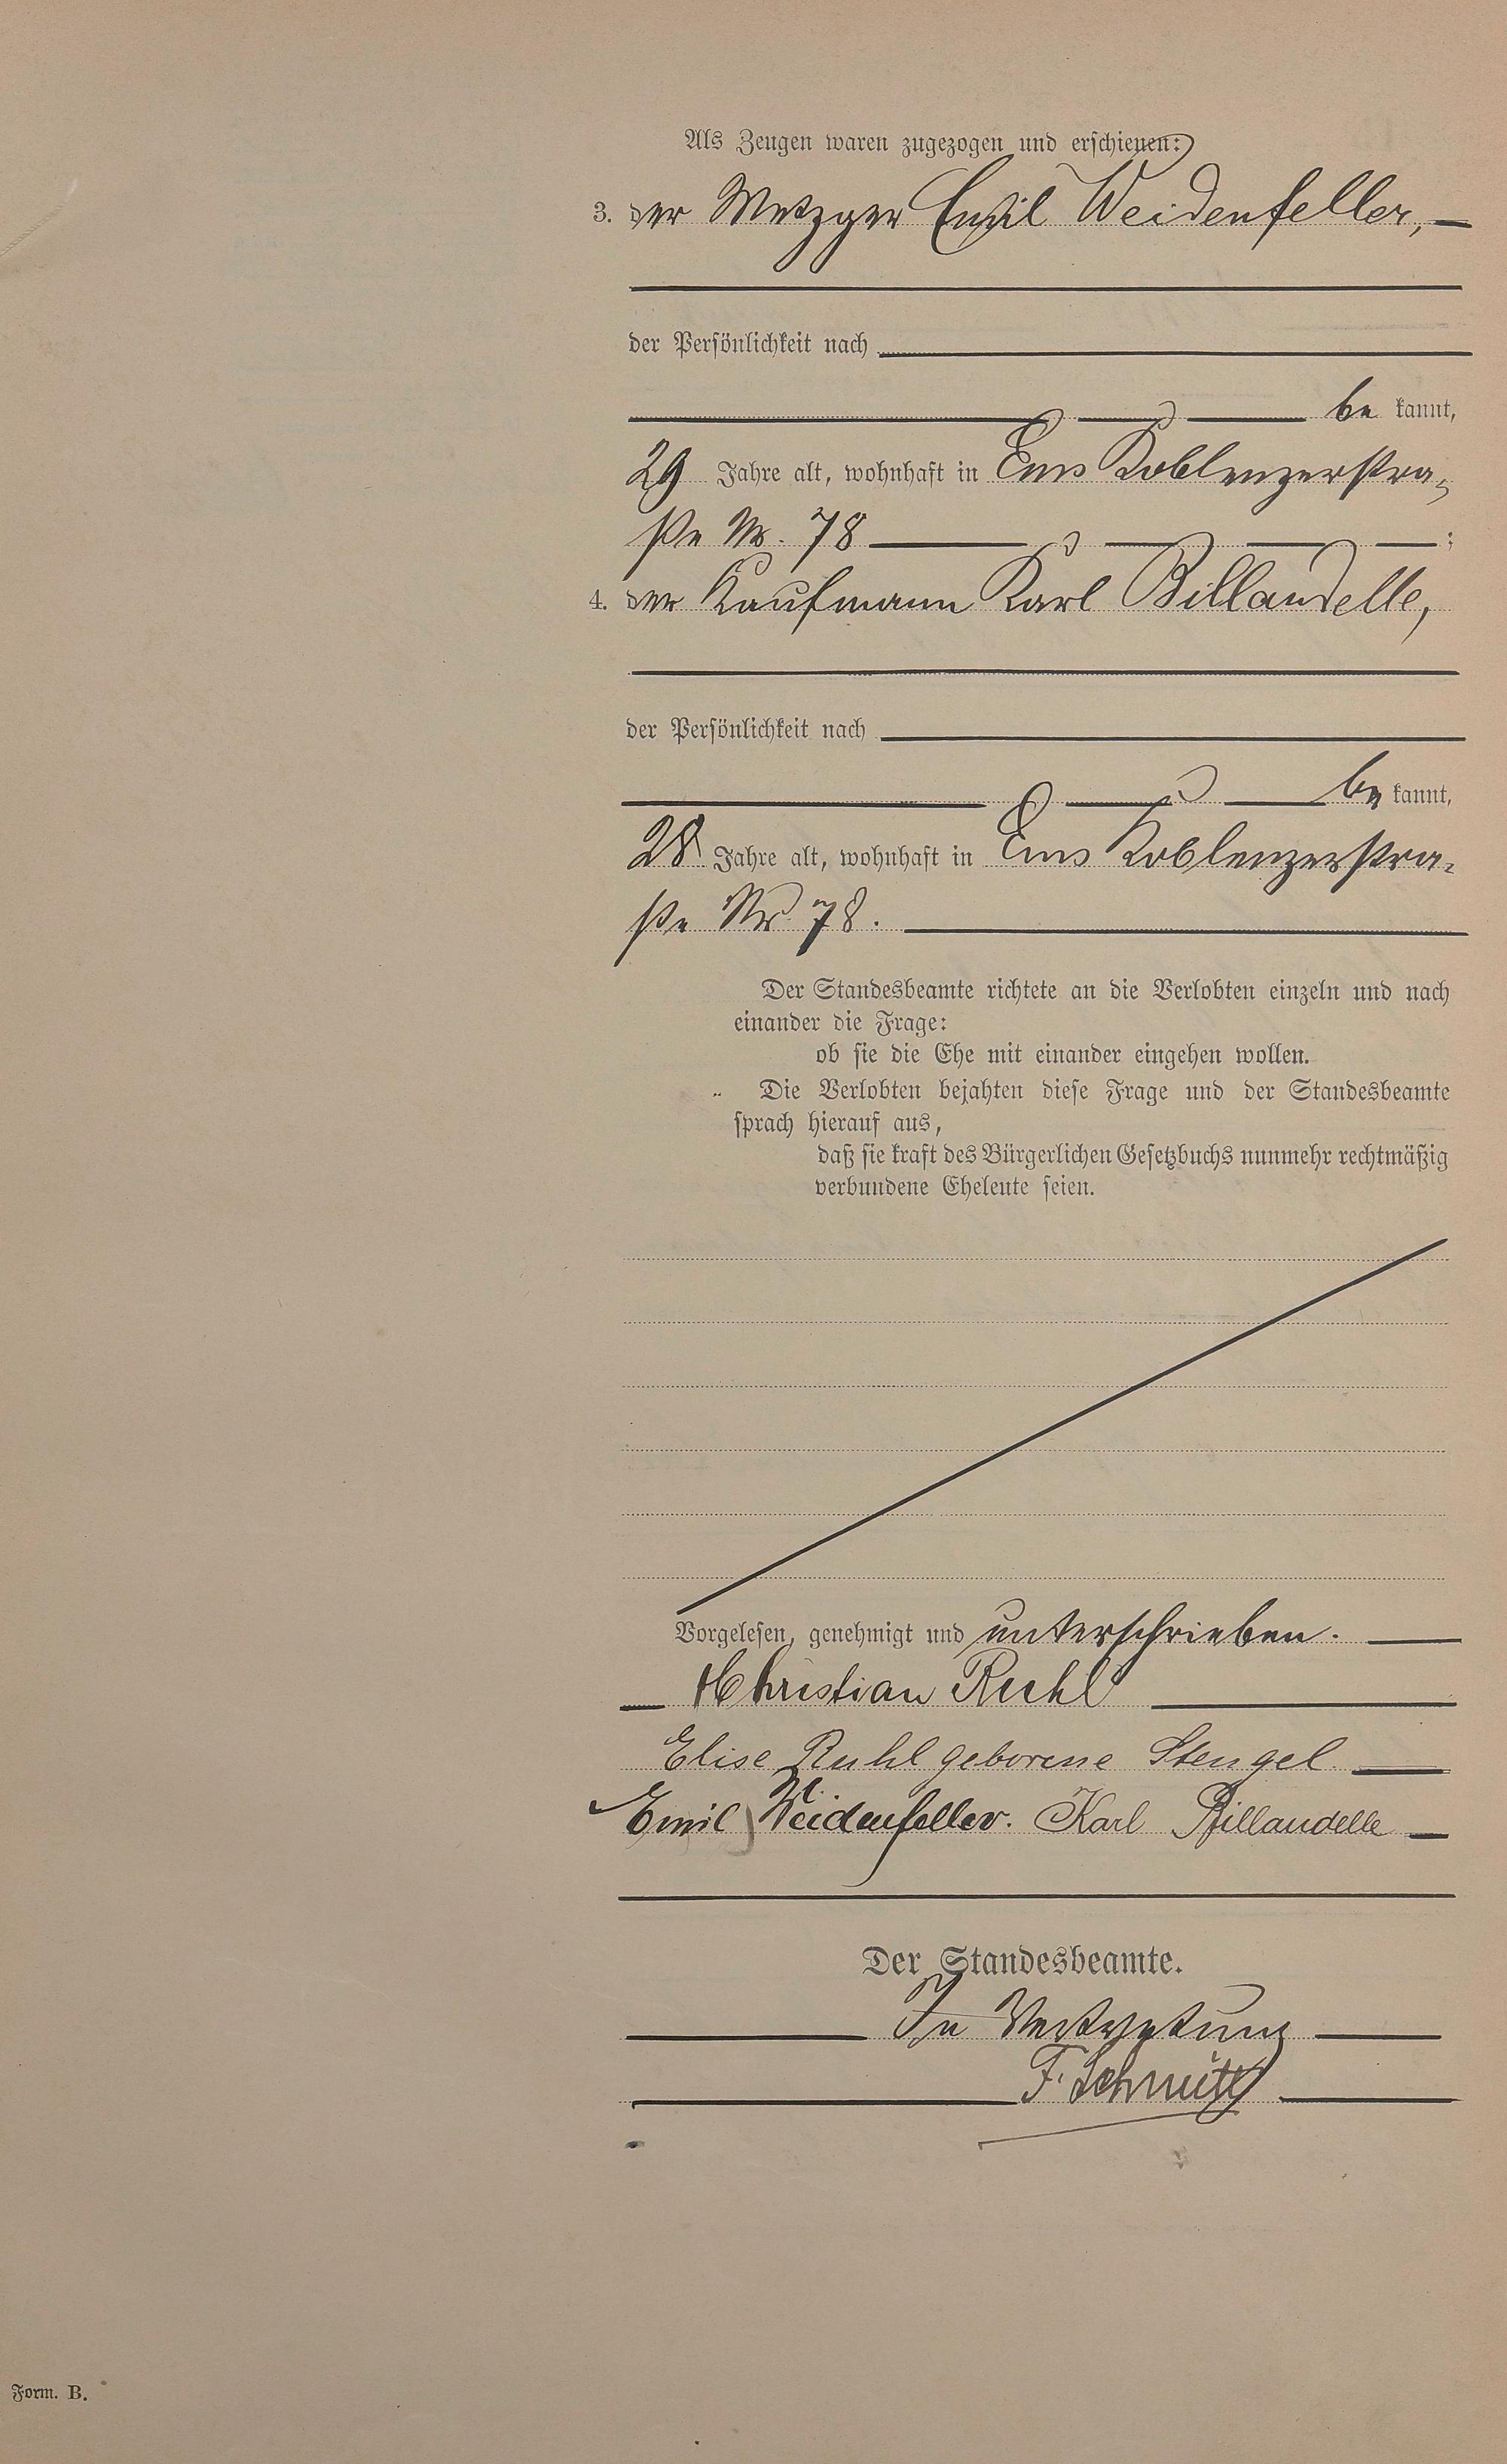 Als Zeugen waren zugezogen und erschienen:
3. der Metzger Emil Weidenfeller,
der Persönlichkeit nach
be kannt,
29 Jahre alt, wohnhaft in Ems Koblenzerstra-
ße Nr. 78 ;
4. der Kaufmann Karl Billaudelle,
der Persönlichkeit nach
be kannt,
28 Jahre alt, wohnhaft in Ems Koblenzerstra-
ße Nr. 78.
Der Standesbeamte richtete an die Verlobten einzeln und nach
einander die Frage:
ob sie die Ehe mit einander eingehen wollen.
Die Verlobten bejahten diese Frage und der Standesbeamte
sprach hierauf aus,
daß sie kraft des Bürgerlichen Gesetzbuchs nunmehr rechtmäßig
verbundene Eheleute seien.
Vorgelesen, genehmigt und unterschrieben.
Christian Ruhl
Elise Ruhl geborene Stengel
Emil Weidenfeller. Karl Billaudelle
Der Standesbeamte.
In Vertretung
F. Schmitt
Form. B.